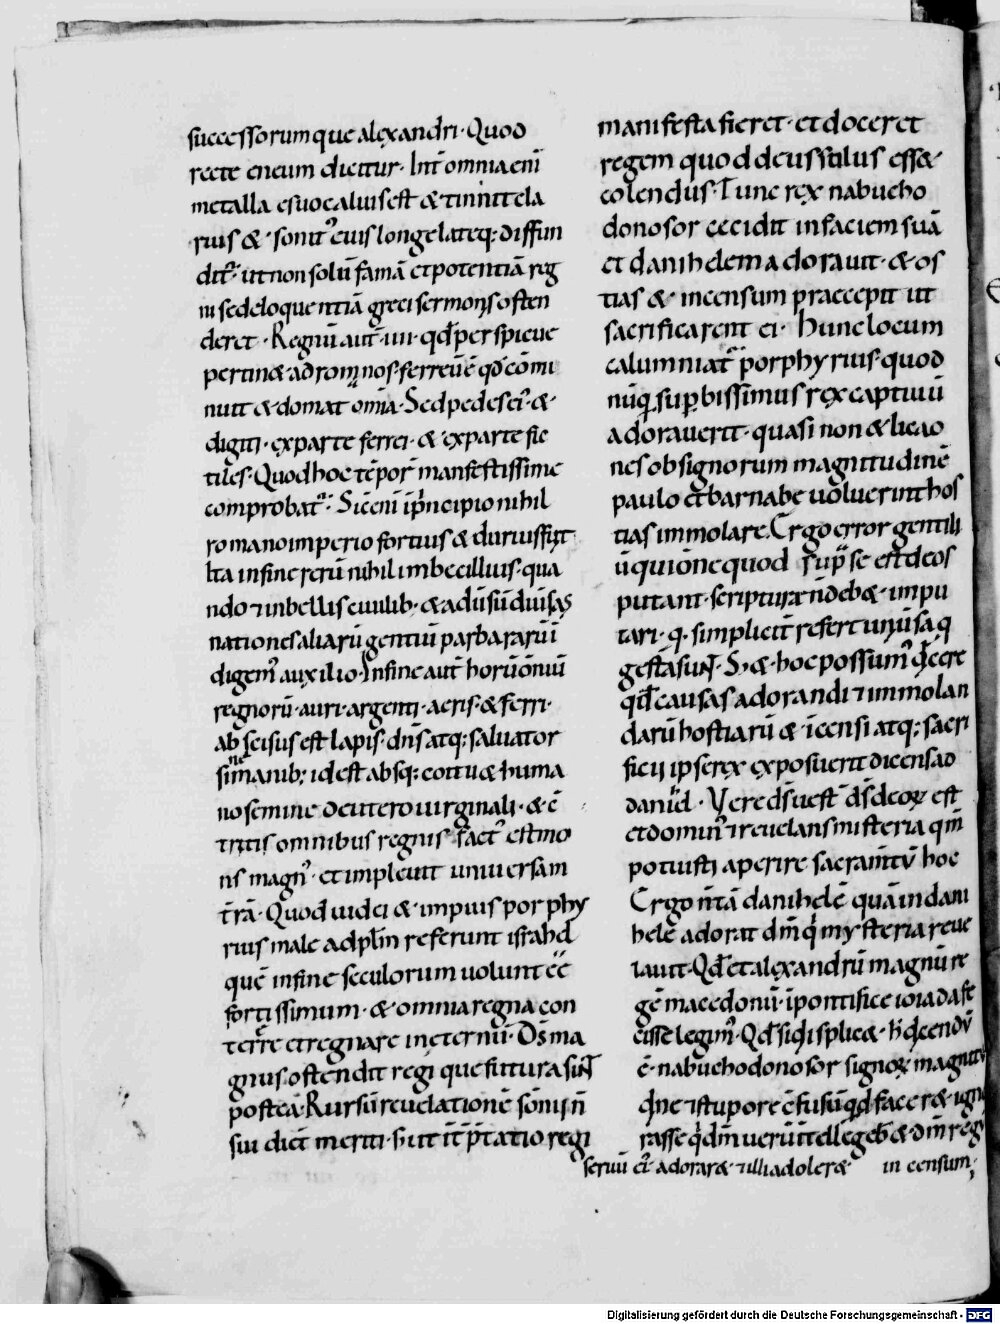 successorumque alexandri· Quod
recte eneum dicitur· Int̄ omnia enī
metalla ęs uocaluis est & tinnitela
rius & sonit᾿ eius longe lateq; diffun
dit᾿· ut non solū famā et potentiā reg
ni sed eloquentiā greci sermonis osten
deret· Regnū aut̄ ·iiii· qđ perspicue
pertin& ad romanos· ferreū ē qđ cōmi
nuit & domat om̄ia· Sed pedes ei᾿ &
digiti· exparte ferrei· & exparte fic
tiles· Quod hoc tēpor̄ manifestissime
comprobat᾿· Sic enī ī principio nihil
romano imperio fortius & durius fuit
Ita infine rerū nihil imbecillius· qua
ndo ⁊ inbellis ciuilib; & aduersū diuersas
nationes aliarū gentiū parbararū ī
digem᾿ auxilio· Infine aut̄ horū omniū
regnorū· auri· argenti· aeris· & ferri·
abscisus est lapis· dn̄s atq; saluator
sine manib; id est absq; coitu & huma
no semine de utero uirginali· & c̄
tritis omnibus regnis· fact᾿ est mo
ns magn᾿· et impleuit uniuersam
t̄rā· Quod iudei & impius porphy
rius male ad pl̄m referunt israhel
quē infine seculorum uolunt ēē
fortissimum· & omnia regna con
terere et regnare in eternū· Ds̄ ma
gnus ostendit regi que futura sunt
posteā· Rursū reuelationē somnii n̄
sui dicit meriti· s; ut īt̄p̄tatio regi
manifesta fieret· et doceret
regem quod deus solus ess&
colendus· Tunc rex nabucho
donosor cecidit in faciem suā
et danihelem adorauit· & os
tias & incensum praecepit ut
sacrificarent ei· Hunc locum
calumniat᾿ porphyrius· quod
nūq superbissimus rex captiuū
adorauerit· quasi non & licao
nes ob signorum magnitudinē
paulo et barnabe uoluerint hos
tias immolare. Ergo error gentili
ū qui om̄e quod sup̄ se est deos
putant· scripturæ n̄ deb& impu
tari· q· simplicit̄ refert uniuersa q
gesta sunt· S; & hoc possum᾿ dicere
qđ causas adorandi ⁊ immolan
darū hostiarū & īcensi atq; sacri
ficii ipse rex exposuerit dicens ad
danihel· Vere ds̄ ur̄ est ds̄ deorum est
et domin᾿ ⁊ reuelans misteria qm̄
potuisti aperire sacram̄tū hoc
Ergo n̄ tā danihelē quā in dani
helē adorat dm̄ qui mysteria reue
lauit· Qđ et alexandrū magnū re
gē macedonū· ī pontifice ioiadæ fe
cisse legim᾿· Qđ si displic&· h̄ dicendū
ē· nabuchodonosor signorum magnitu
dine ⁊ stupore c̄fusū qđ facer& igno
rasse· q dm̄ uerū ītellegeb& & dm̄ reg
seruū ei᾿ adorar& ⁊ illi adoler& incensum;
Digitalisierung gefördert durch die Deutsche Forschungsgemeinschaft - DFG